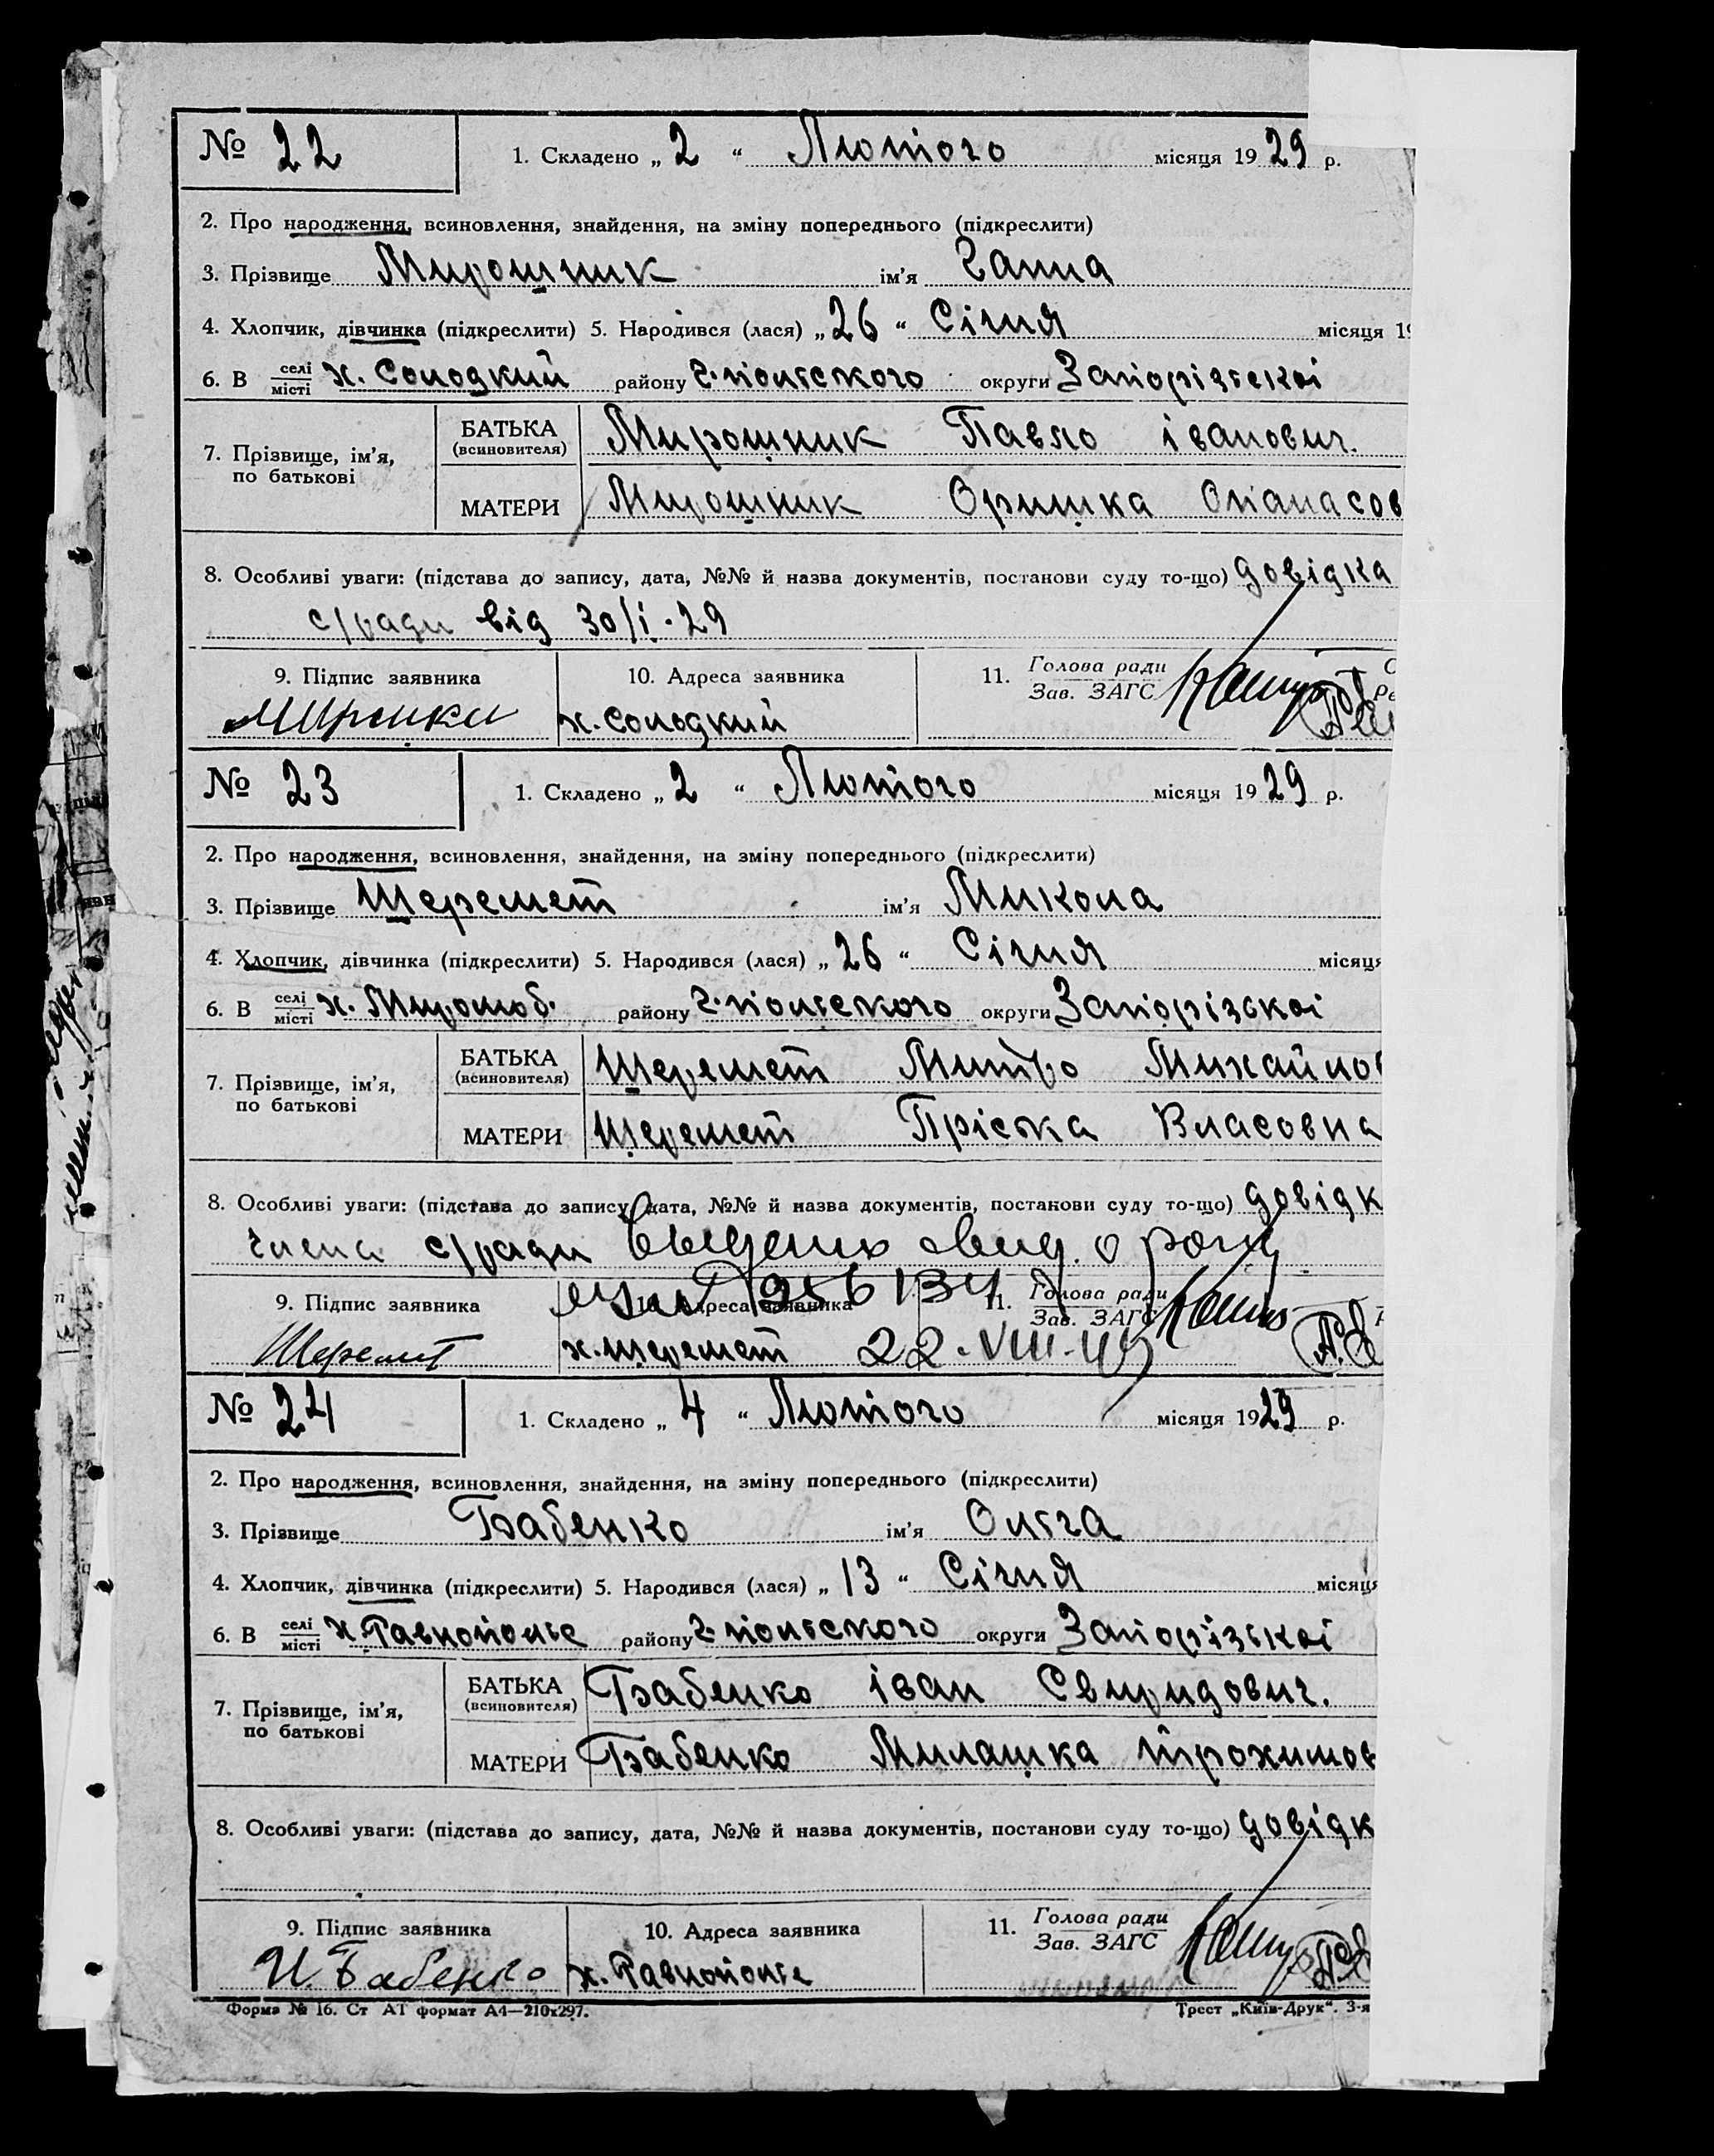 № 22 1. Складено „ 2 “ Лютого місяця 19 29 р.
2. Про народження, всиновлення, знайдення, на зміну попереднього (підкреслити)
3. Прізвище Мирошник ім’я Ганна
4. Хлопчик, дівчинка (підкреслити) 5. Народився (лася) „ 26 “ Січня місяця 19
6. В селі місті х. Солодкий району Г-польского округи Запорізськоі
7. Прізвище, ім’я, по батькові
БАТЬКА (всиновителя) Мирошник Павло іванович.
МАТЕРИ Мирошник Оришка Опанасов
8. Особливі уваги: (підстава до запису, дата, №№ й назва документів, постанови суду то-що) довідка
с/ради від 30/І-29
9. Підпис заявника 10. Адреса заявника 11. Голова ради Зав. ЗАГС
х. Солодкий
№ 23 1. Складено „ 2 “ Лютого місяця 19 29 р.
2. Про народження, всиновлення, знайдення, на зміну попереднього (підкреслити)
3. Прізвище Шеремет ім’я Микола
4. Хлопчик, дівчинка (підкреслити) 5. Народився (лася) „ 26 “ Січня місяця
6. В селі місті х. району Г-польского округи Запорізскоі
7. Прізвище, ім’я, по батькові
БАТЬКА (всиновителя) Шеремет Митро Михайлов
МАТЕРИ Шеремет Пріська Власовна
8. Особливі уваги: (підстава до запису, дата, №№ й назва документів, постанови суду то-що) довідк
члена с/ради свид. о рожд
9. Підпис заявника 10. Адреса заявника 11. Голова ради Зав. ЗАГС
Шеремет х. Шеремет 22-VIII-49
№ 24 1. Складено „ 4 “ Лютого місяця 19 29 р.
2. Про народження, всиновлення, знайдення, на зміну попереднього (підкреслити)
3. Прізвище Бабенко ім’я Ольга
4. Хлопчик, дівчинка (підкреслити) 5. Народився (лася) „ 13 “ Січня місяця
6. В селі місті х. Равнополье району Г-польского округи Запорізькоі
7. Прізвище, ім’я, по батькові
БАТЬКА (всиновителя) Бабенко іван Свиридович.
МАТЕРИ Бабенко Милашка Трохимов
8. Особливі уваги: (підстава до запису, дата, №№ й назва документів, постанови суду то-що) довідк
9. Підпис заявника 10. Адреса заявника 11. Голова ради Зав. ЗАГС
И. Бабенко х. Равнополье
Форма № 16. Ст АТ формат А4—210х297. Трест „Київ-Друк“. З-я